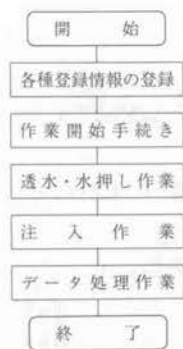 開始
各種登録情報の登録
作業開始手続き
透水・水押し作業
注入作業
データ処理作業
終了